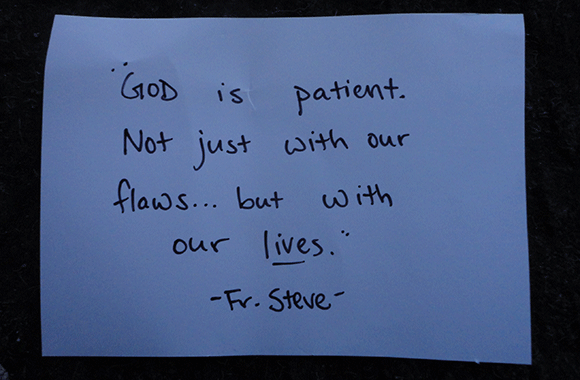 "GOD is patient.
Not just with our
flaws... but with
our lives."
-Fr. Steve-